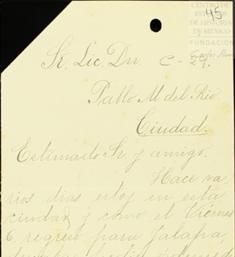 45
CENTRO DE
DE HISTORIA
DE MEXICO
FUNDACIÓN
Sr. Lic. Dn. C-29.
Pablo M. del Río
Ciudad.
Estimado Sr. y amigo.
Hace va
rios dias estoy en esta
ciudad y como el Viernes
6. regreso para Jalapa,